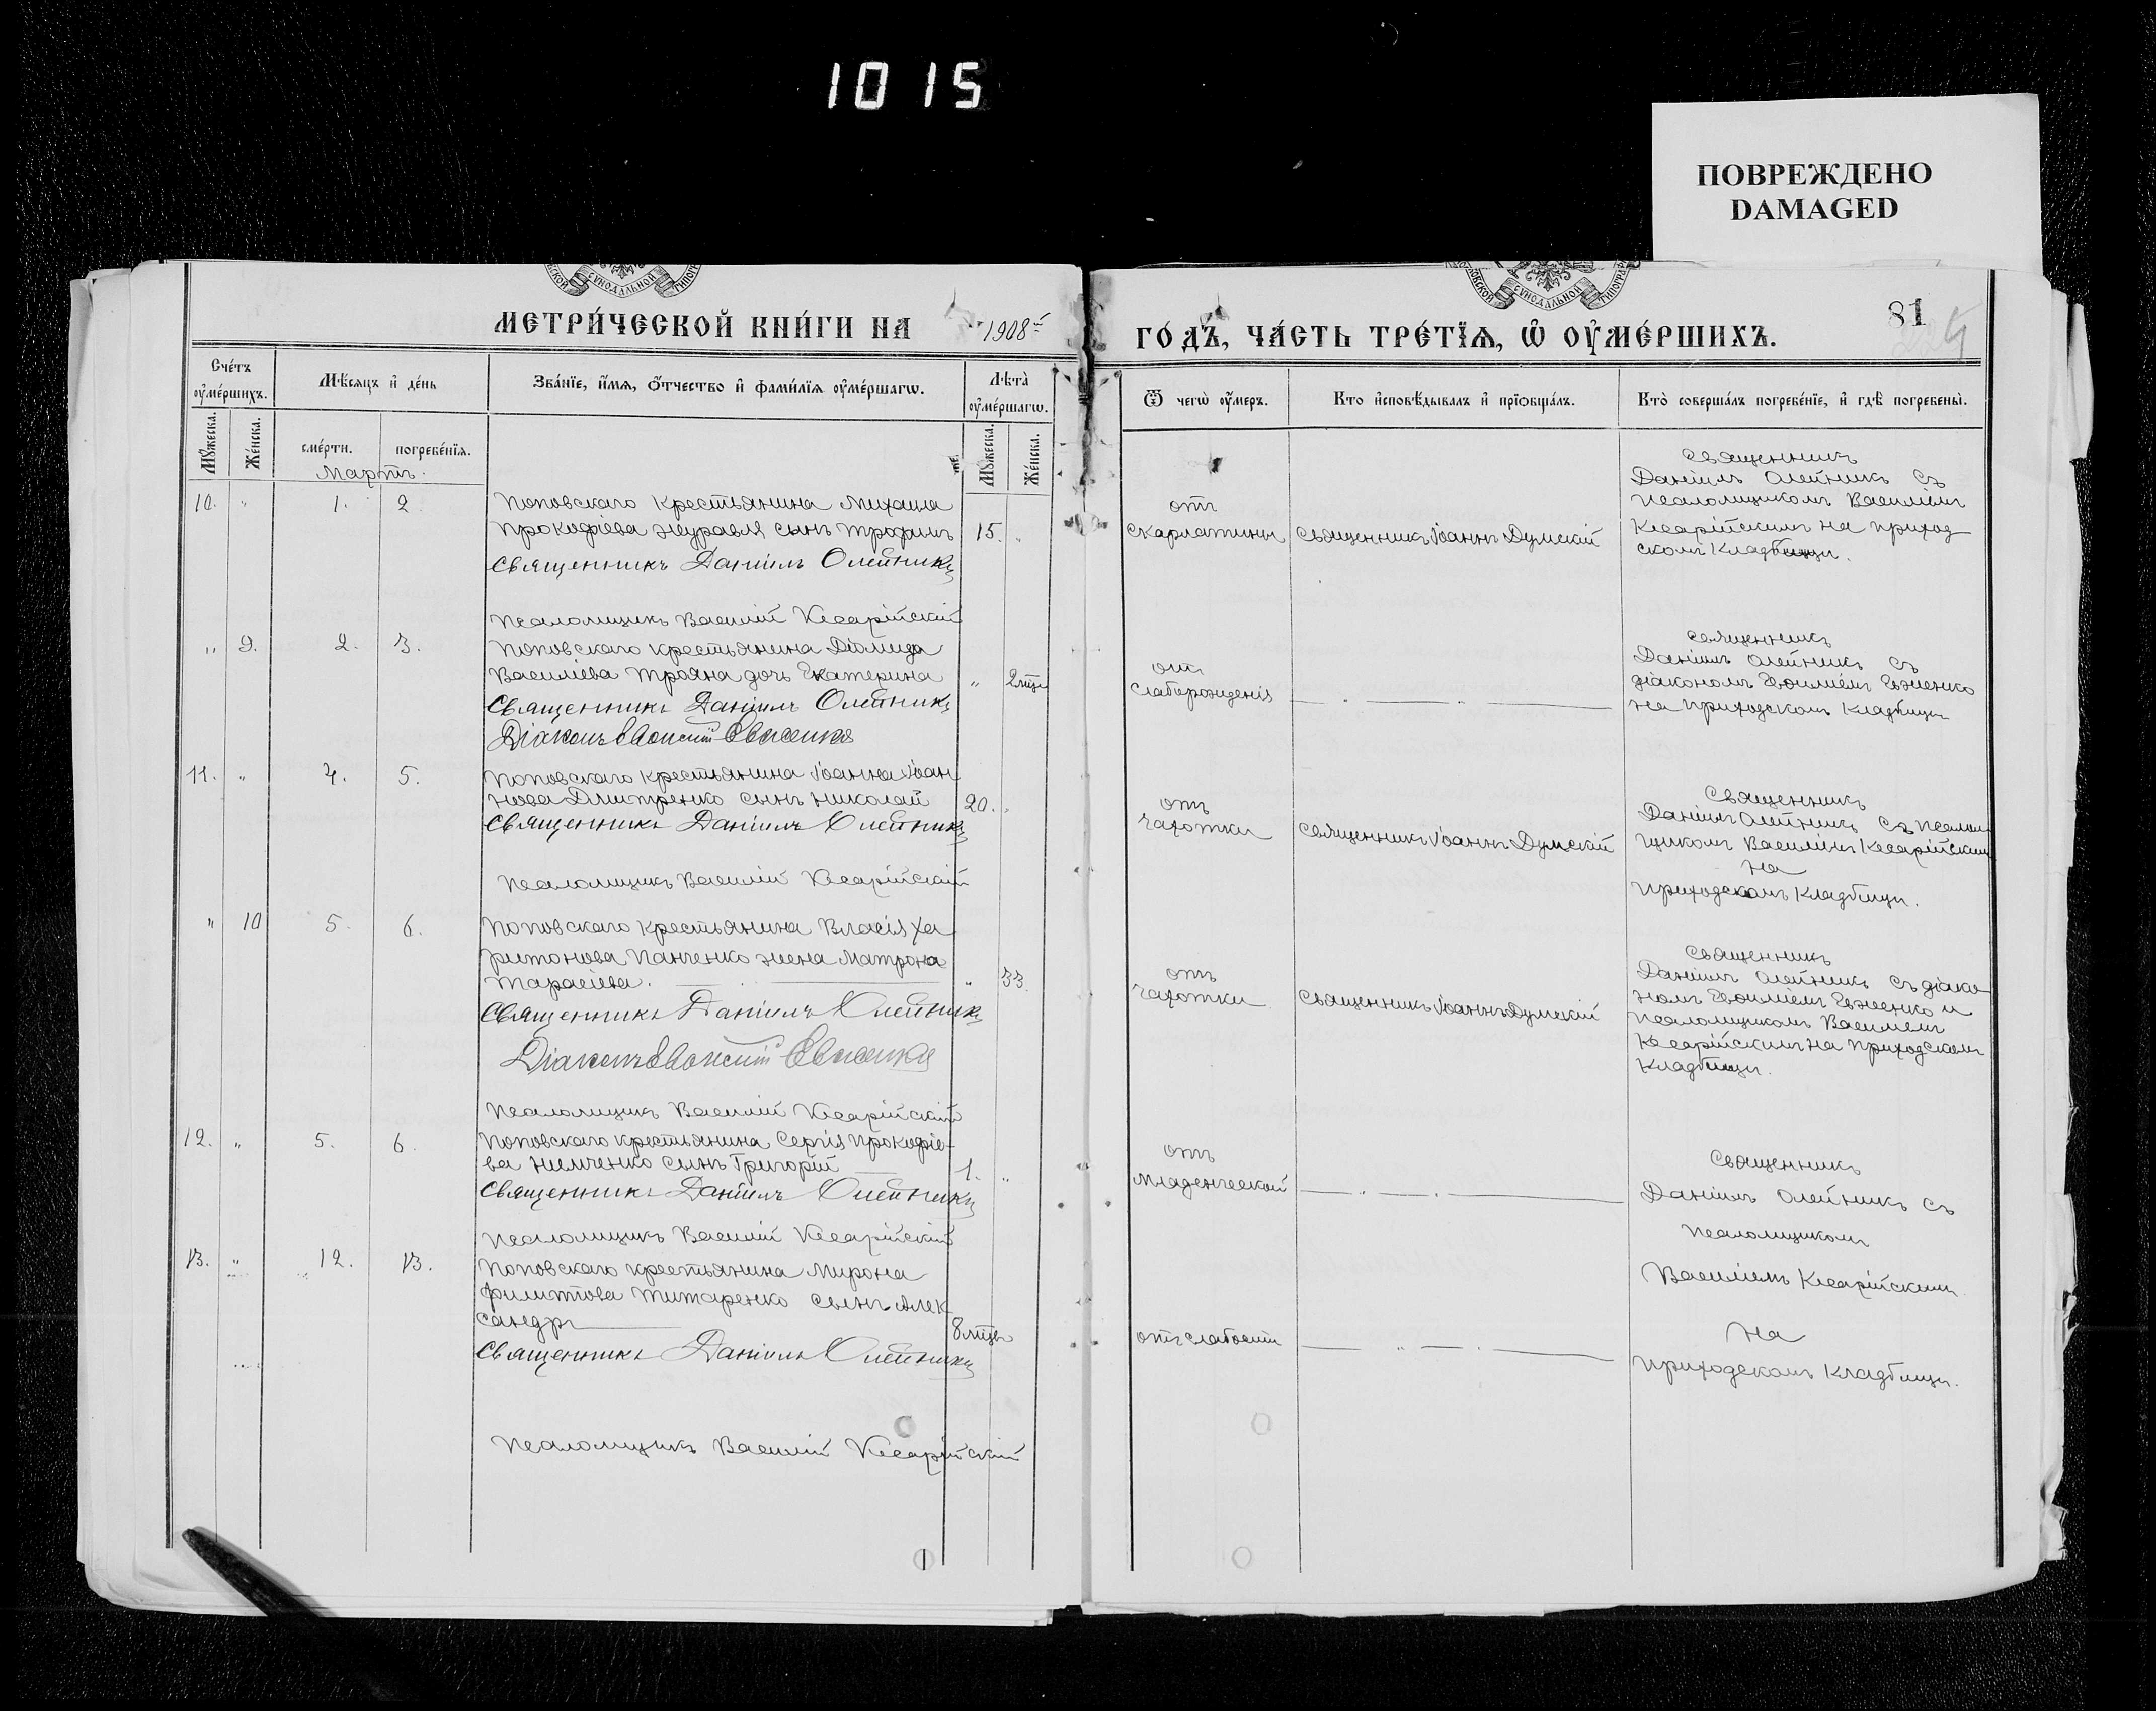 1015
ПОВРЕЖДЕНО
DAMAGED
СѴНОДАЛЬНОЙ
МЕТРИ́ЧЕСКОЙ КНИ́ГИ НА 1908й
ГО́ДЪ, ЧА́СТЬ ТРЕ́ТЇѦ, Ѽ ОУ҆МЕ́РШИХЪ.
81
Сче́тъ оу҆ме́ршихъ.
Мѣ́сяцъ и҆ де́нь
Зва́нїе, и҆́мѧ, ѻ҆́тчество и҆ фами́лїѧ оу҆ме́ршагѡ.
Лѣ́та оу҆ме́ршагѡ.
Ѿ чегѡ̀ оу҆́меръ.
Кто̀ и҆сповѣ́дывалъ и҆ прїѡбща́лъ.
Кто̀ соверша́лъ погребе́нїе, и҆ гдѣ̀ погребены̀.
Мꙋ́жеска.
Же́нска.
сме́рти.
погребе́нїѧ.
Мꙋ́жеска.
Же́нска.
Мартъ.
10. " 1. 2.
Поповскаго крестьянина Михаила
Прокофіева Журавля сынъ Трофимъ
15. "
Священникъ Даніилъ Олейникъ
Псаломщикъ Василій Кесарійскій
отъ
скарлатины
Священникъ Іоаннъ Думскій
Священникъ
Даніилъ Олейникъ съ
псаломщикомъ Василіемъ
Кесарійскимъ на приход
скомъ кладбищи.
" 9. 2. 3.
Поповскаго крестьянина Діомида
Василіева Трояна дочь Екатерина
" 2 мцѣ
Священникъ Даніилъ Олейникъ
Діаконъ Евѳимій Евженко
отъ
слаборожденія
Священникъ
Даніилъ Олейникъ съ
діакономъ Евѳиміемъ Евженко
на приходскомъ кладбищи
11. " 4. 5.
Поповскаго крестьянина Іоанна Іоан
нова Дмитренко сынъ Николай
20. "
Священникъ Даніилъ Олейникъ
Псаломщикъ Василій Кесарійскій
отъ
чахотки
Священникъ Іоаннъ Думскій
Священникъ
Даніилъ Олейникъ съ псалом
щикомъ Василіемъ Кесарійскимъ
на
приходскомъ кладбищи.
" 10 5. 6.
Поповскаго крестьянина Власія Ха
ритонова Панченко жена Матрона
Тарасіева.
" 33
Священникъ Даніилъ Олейникъ
Діаконъ Евѳимій Евженко
Псаломщикъ Василій Кесарійскій
отъ
чахотки
Священникъ Іоаннъ Думскій
Священникъ
Даніилъ Олейникъ съ діако
номъ Евѳиміемъ Евженко и
псаломщикомъ Василіемъ
Кесарійскимъ на приходскомъ
кладбищи.
12. " 5. 6.
Поповскаго крестьянина Сергія Прокофіе-
ва Немченко сынъ Григорій
1. "
Священникъ Даніилъ Олейникъ
Псаломщикъ Василій Кесарійскій
отъ
младенческой
Священникъ
Даніилъ Олейникъ съ
псаломщикомъ
Василіемъ Кесарійскимъ
на
приходскомъ кладбищи.
13. " 12. 13.
Поповскаго крестьянина Мирона
Титаренко сынъ Алек
сандръ
8 мцѣ
Священникъ Даніилъ Олейникъ
Псаломщикъ Василій Кесарійскій
отъ слабости